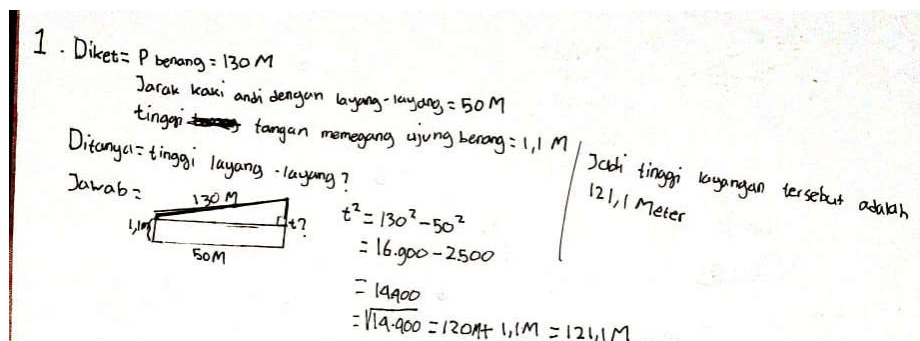 1. Diket= P benang = 130 M
Jarak kaki andi dengan layang-layang = 50 M
tinggi tangan memegang ujung benang = 1,1 M
Ditanya= tinggi layang-layang?
Jawab=
130 M
1,1m
t?
50M
t² = 130² - 50²
= 16.900 - 2500
= 14400
= √14.400 = 120M + 1,1M = 121,1M
Jadi tinggi layangan tersebut adalah
121,1 Meter